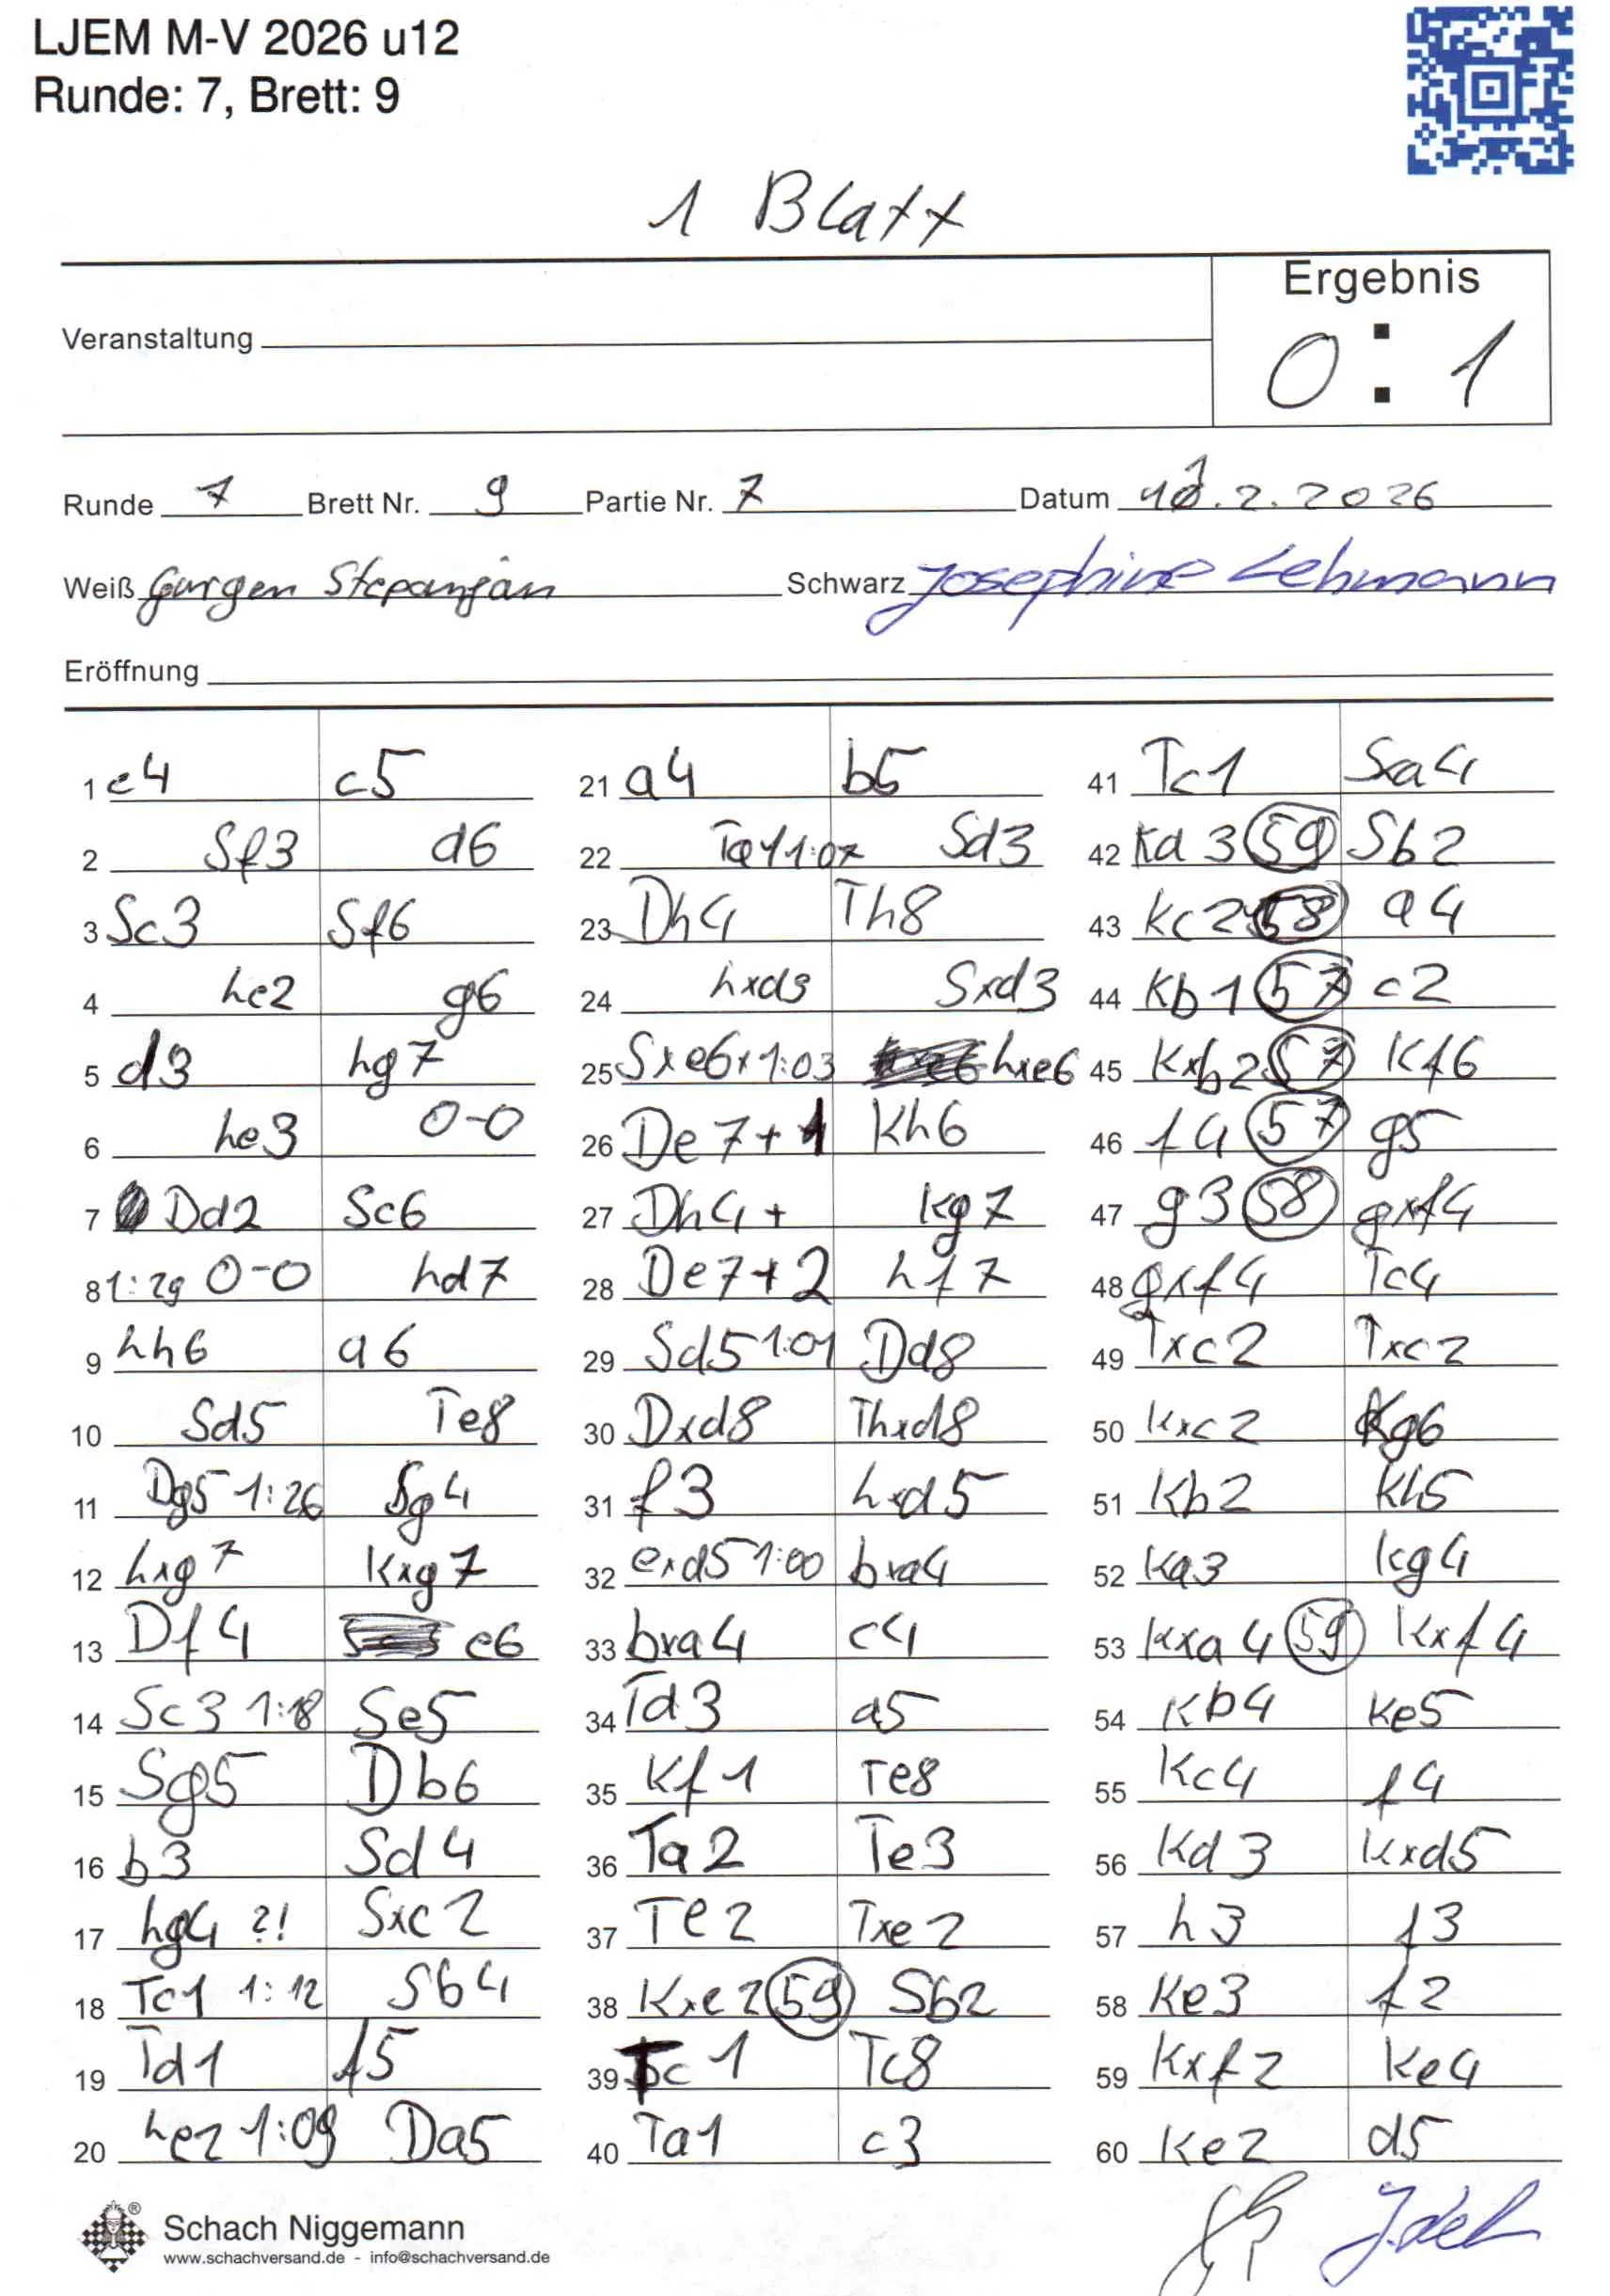 LJEM M-V 2026 u12
Runde: 7, Brett: 9
1 Blatt
Ergebnis
0 : 1
Veranstaltung
Runde 7 Brett Nr. 9 Partie Nr. 7 Datum 1.2.2026
Weiß Gurgen Stepanjan Schwarz Josephine Lehmann
Eröffnung
1 e4 c5
2 Sf3 d6
3 Sc3 Sf6
4 he2 g6
5 d3 hg7
6 he3 0-0
7 Dd2 Sc6
8 1:29 0-0 hd7
9 hh6 a6
10 Sd5 Te8
11 Dg5 1:26 Sg4
12 hxg7 Kxg7
13 Df4 e6
14 Sc3 1:18 Se5
15 Sg5 Db6
16 b3 Sd4
17 hg4 ?! Sxc2
18 Tc1 1:12 Sb4
19 Td1 f5
20 he2 1:09 Da5
21 a4 b5
22 Ta1 1:07 Sd3
23 Dh4 Th8
24 hxd3 Sxd3
25 Sxe6x 1:03 hxe6
26 De7+ 1 Kh6
27 Dh4+ Kg7
28 De7+2 hf7
29 Sd5 1:01 Dd8
30 Dxd8 Thxd8
31 f3 hxd5
32 exd5 1:00 bxa4
33 bxa4 c4
34 Td3 a5
35 Kf1 Te8
36 Ta2 Te3
37 Te2 Txe2
38 Kxe2 59 Sb2
39 Tc1 Tc8
40 Ta1 c3
41 Tc1 Sxa4
42 Kd3 59 Sb2
43 Kc2 58 a4
44 Kb1 57 c2
45 Kxb2 57 Kf6
46 f4 57 g5
47 g3 58 gxf4
48 gxf4 Tc4
49 Txc2 Txc2
50 Kxc2 Kg6
51 Kb2 Kh5
52 Ka3 Kg4
53 Kxa4 59 Kxf4
54 Kb4 Ke5
55 Kc4 f4
56 Kd3 Kxd5
57 h3 f3
58 Ke3 f2
59 Kxf2 Ke4
60 Ke2 d5
Schach Niggemann
www.schachversand.de - info@schachversand.de